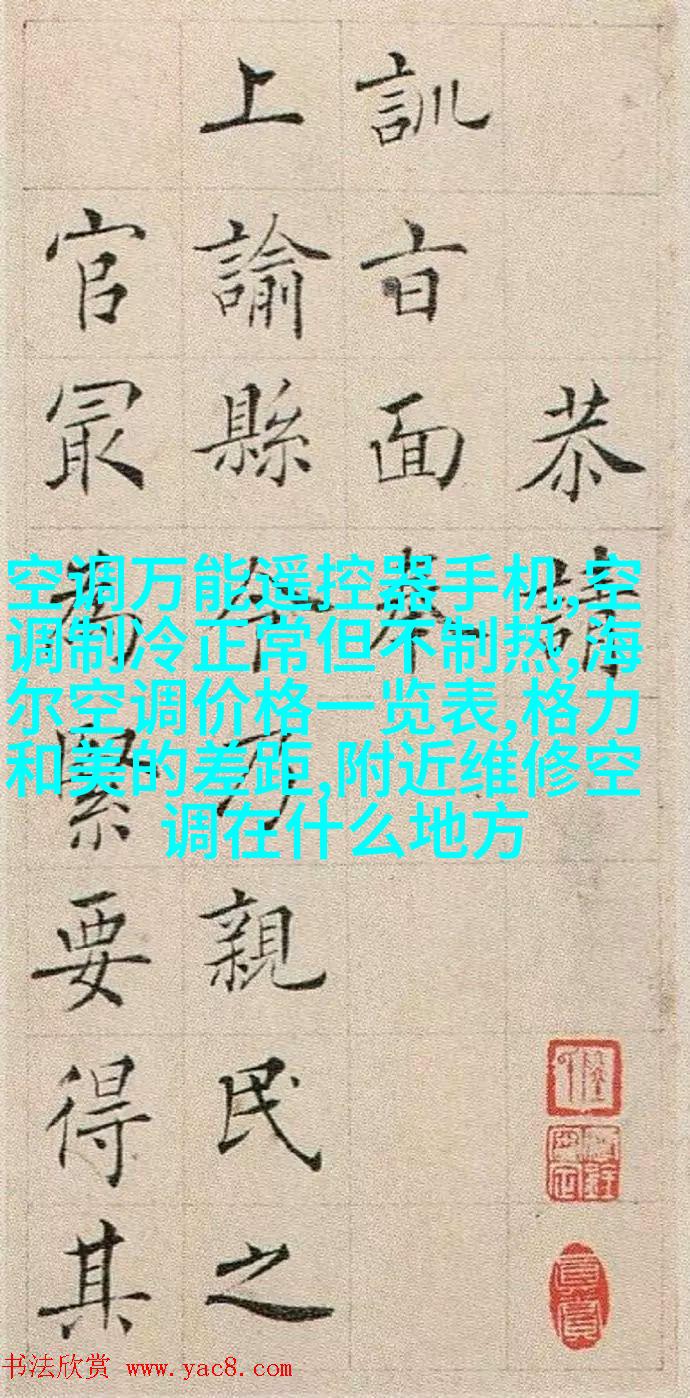 恭請
訓旨面奉
上諭縣令乃親民之
官冣為緊要得其
空调万能遥控器手机,空
调制冷正常但不制热,海
尔空调价格一览表,格力
和美的差距,附近维修空
调在什么地方
书法欣赏 www.yac8.com